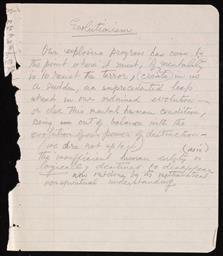 Evolutionism
Our explosive progress has come to
the point where it must, if mentality
is to resist the terror, (create) in us
a sudden, an unprecedented leap
ahead in our ordained evolution —
or else this mental human condition,
being so out of balance with the
evolution of our power of destruction —
(we are not up to ) (arise)
the insufficient human entity is
logically destined to disappear
now reducing by its
nonspiritual understanding